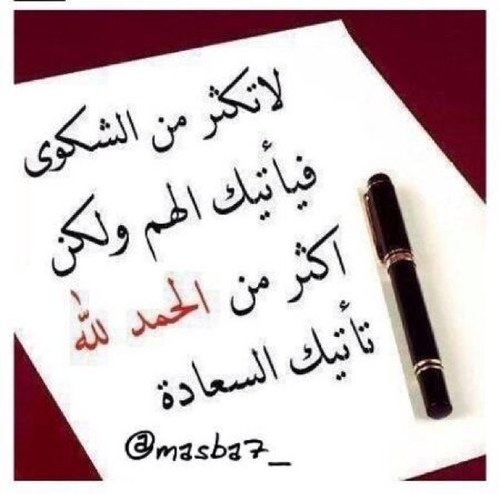 لا تكثر من الشكوى
فيأتيك الهم ولكن
اكثر من الحمد لله
تأتيك السعادة
@masba7_